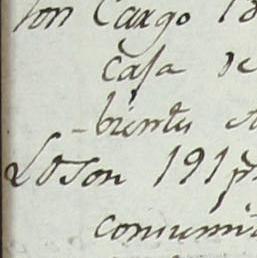 ton Cargo 18
casa de
-bientes
Lo son 191 p
comuni